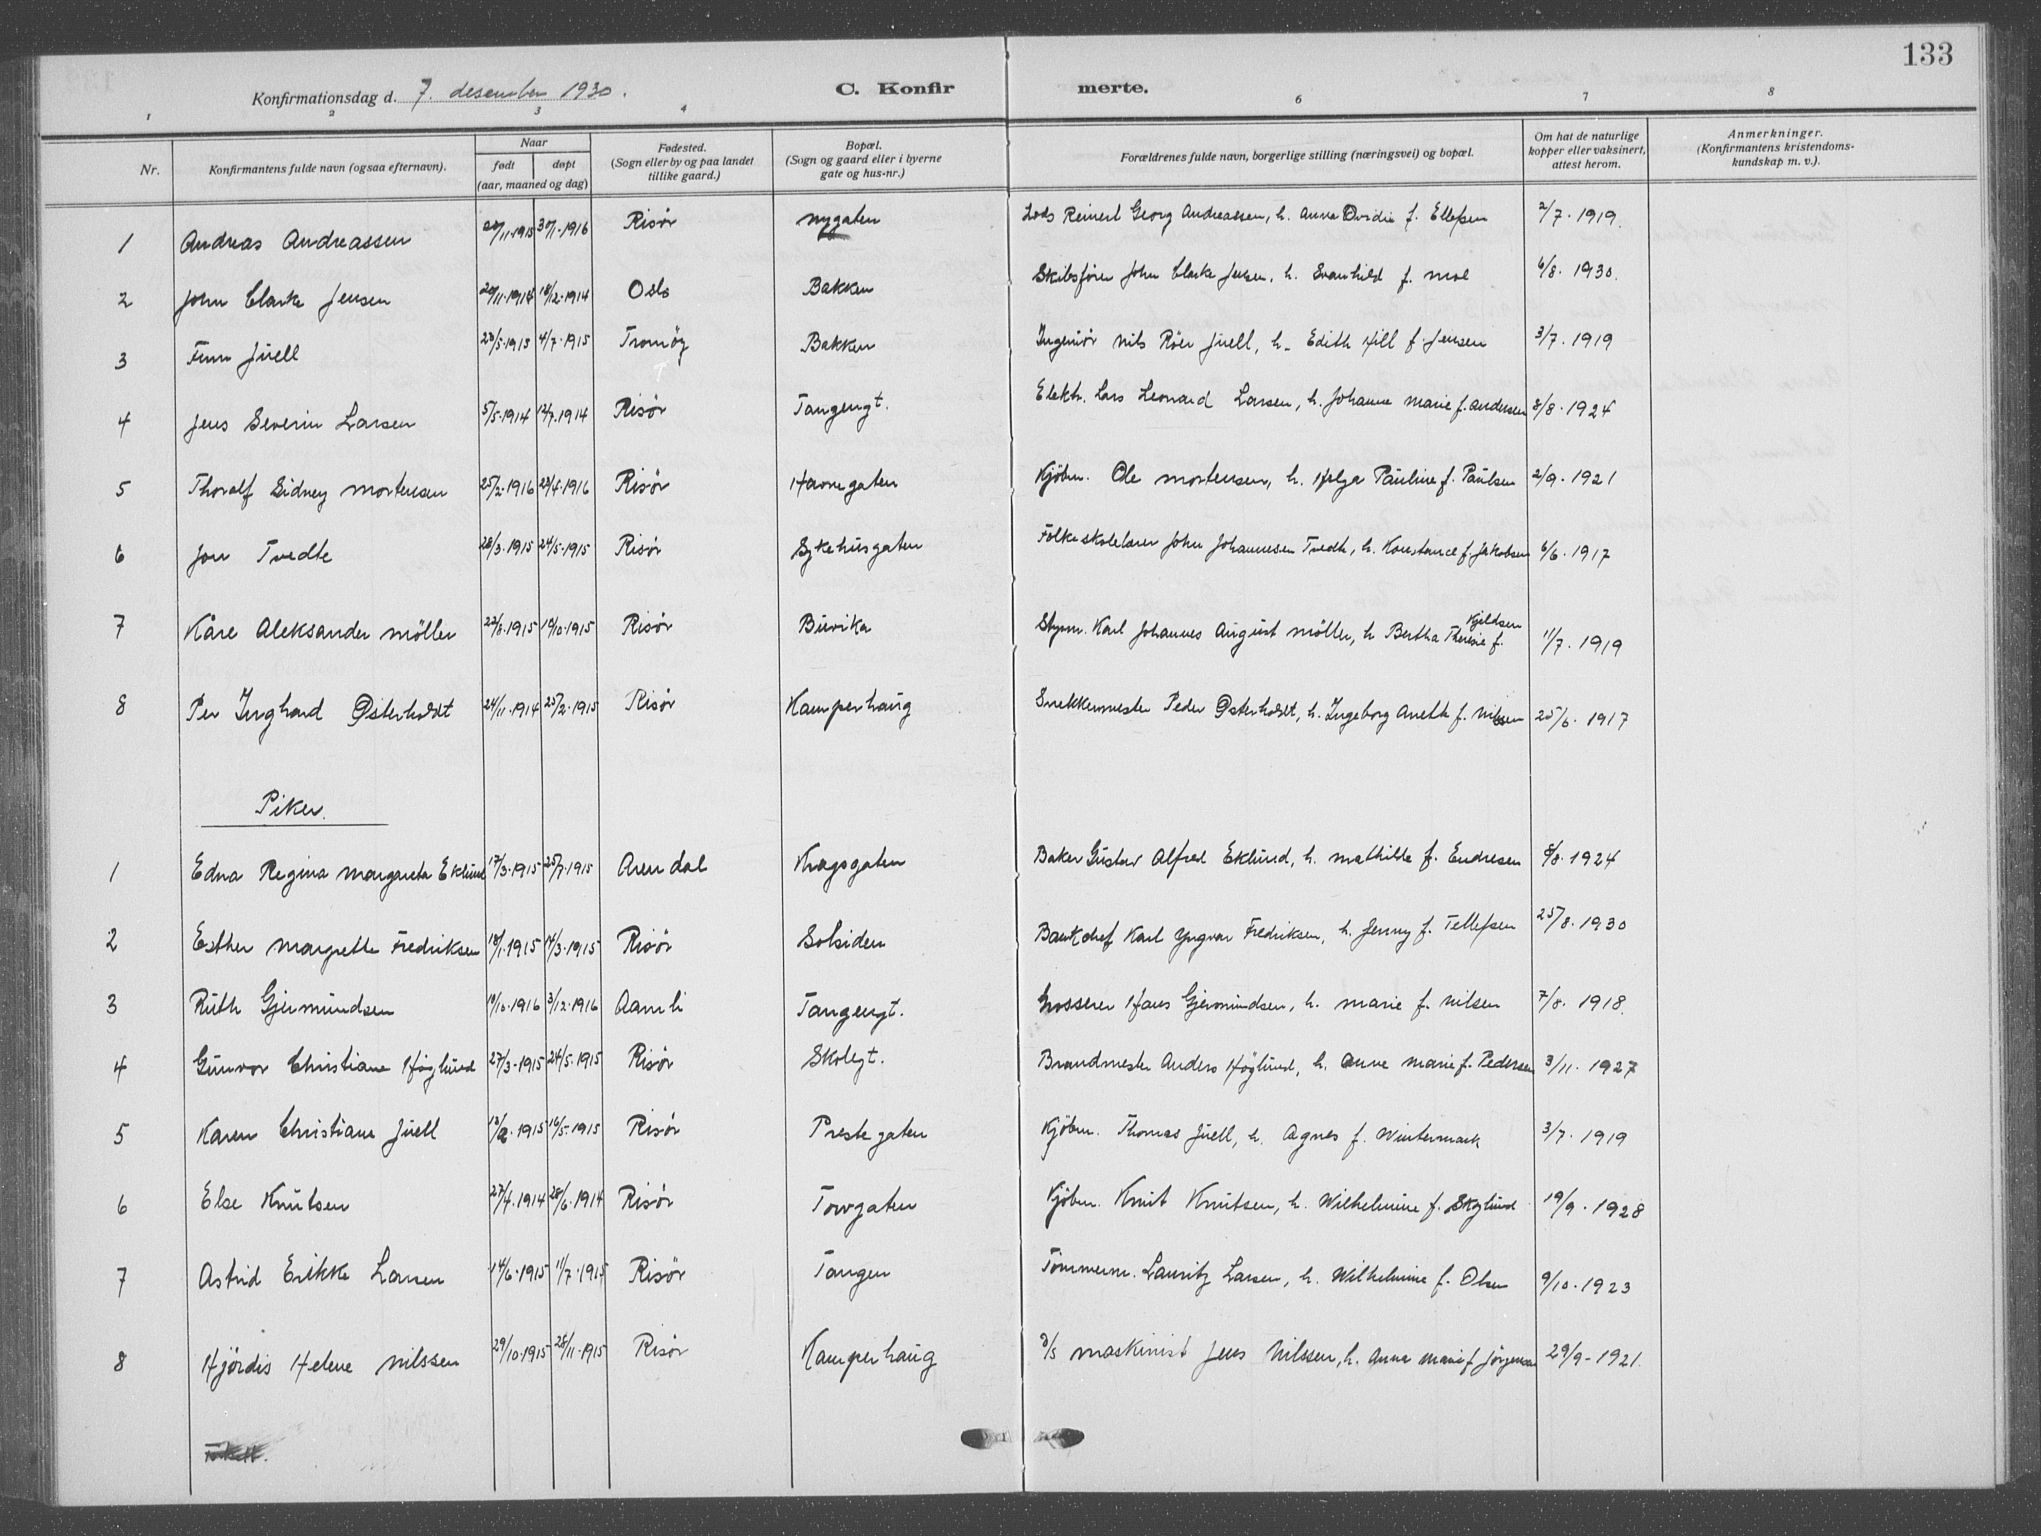 133
Konfirmationsdag d. 7. desember 1930.
C. Konfirmerte.
1 2 3 4 6 7 8
Nr. | Konfirmantens fulde navn (ogsaa efternavn). | Naar født døpt (aar, maaned og dag) | Fødested. (Sogn eller by og paa landet tillike gaard.) | Bopæl. (Sogn og gaard eller i byerne gate og hus-nr.) | Forældrenes fulde navn, borgerlige stilling (næringsvei) og bopæl. | Om hat de naturlige kopper eller vaksinert, attest herom. | Anmerkninger. (Konfirmantens kristendoms-kundskap m. v.).
1 Andreas Andreassen 20/11.1915 30/1.1916 Risör Nygaten Lods Reinert Georg Andreassen, h. Anna Ovidia f. Ellefsen 2/7.1919.
2 John Clarke Jensen 18/12.1914 Oslo Bakken Skibsfører John Clarke Jensen, h. Svanhild f. Moe 6/8.1930.
3 Finn Juell 23/5.1915 4/7.1915 Tromöy Bakken Ingeniör Nils Röer Juell, h. Edith Hill f. Jensen 3/7.1919
4 Jens Severin Larsen 5/5.1914 12/7.1914 Risör Tangengt. Elektr. Lars Leonard Larsen, h. Johanne Marie f. Andersen 8/8.1924
5 Thoralf Sidney Mortensen 25/2.1916 23/4.1916 Risör Havnegaten Kjöbm. Ole Mortensen, h. Helga Pauline f. Paulsen 2/9.1921
6 Jon Tvedte 28/3.1915 24/5.1915 Risör Sykehusgaten Folkeskolelærer John Johannesen Tvedte, h. Konstance f. Jakobsen 6/6.1917
7 Kåre Aleksander Möller 1915 19/10.1915 Risör Buvika Styrm. Karl Johannes August Möller, h. Bertha Therese f. Kjeldsen 11/7.1919
8 Per Inghard Østerholdt 24/11.1914 25/2.1915 Risör Kamperhaug Snekkermester Peder Østerholdt, h. Ingeborg Anette f. Nilssen 25/6.1917
Piker.
1 Edna Regina Margareta Eklund 17/3.1915 25/7.1915 Arendal Kragsgaten Baker Gustav Alfred Eklund, h. Mathilde f. Endresen 8/8.1924
2 Esther Margrethe Fredriksen 18/1.1915 14/3.1915 Risör Solsiden Bankchef Karl Yngvar Fredriksen, h. Jenny f. Tellefsen 25/8.1930
3 Ruth Gjermundsen 10/10.1916 3/12.1916 Aamli Tangengt. Grosserer Hans Gjermundsen, h. Marie f. Nilsen 7/8.1918.
4 Gunvor Christiane Höglund 27/3.1915 24/5.1915 Risör Skolegt. Brandmester Anders Höglund, h. Anne Marie f. Pedersen 3/11.1927
5 Karen Christiane Juell 13/2.1915 16/5.1915 Risör Prestegaten Kjöbm. Thomas Juell, h. Agnes f. Wintermark 3/7.1919
6 Else Knutsen 27/4.1914 28/6.1914 Risör Torvgaten Kjöbm. Knut Knutsen, h. Wilhelmine f. Skoglund 19/9.1928
7 Astrid Erikke Larsen 14/6.1915 11/7.1915 Risör Tangen Tömmerm. Lauritz Larsen, h. Wilhelmine f. Olsen 9/10.1923
8 Hjördis Helene Nilssen 29/10.1915 28/11.1915 Risör Kamperhaug D/S maskinist Jens Nilssen, h. Anna Marie f. Jörgensen 29/9-1921.